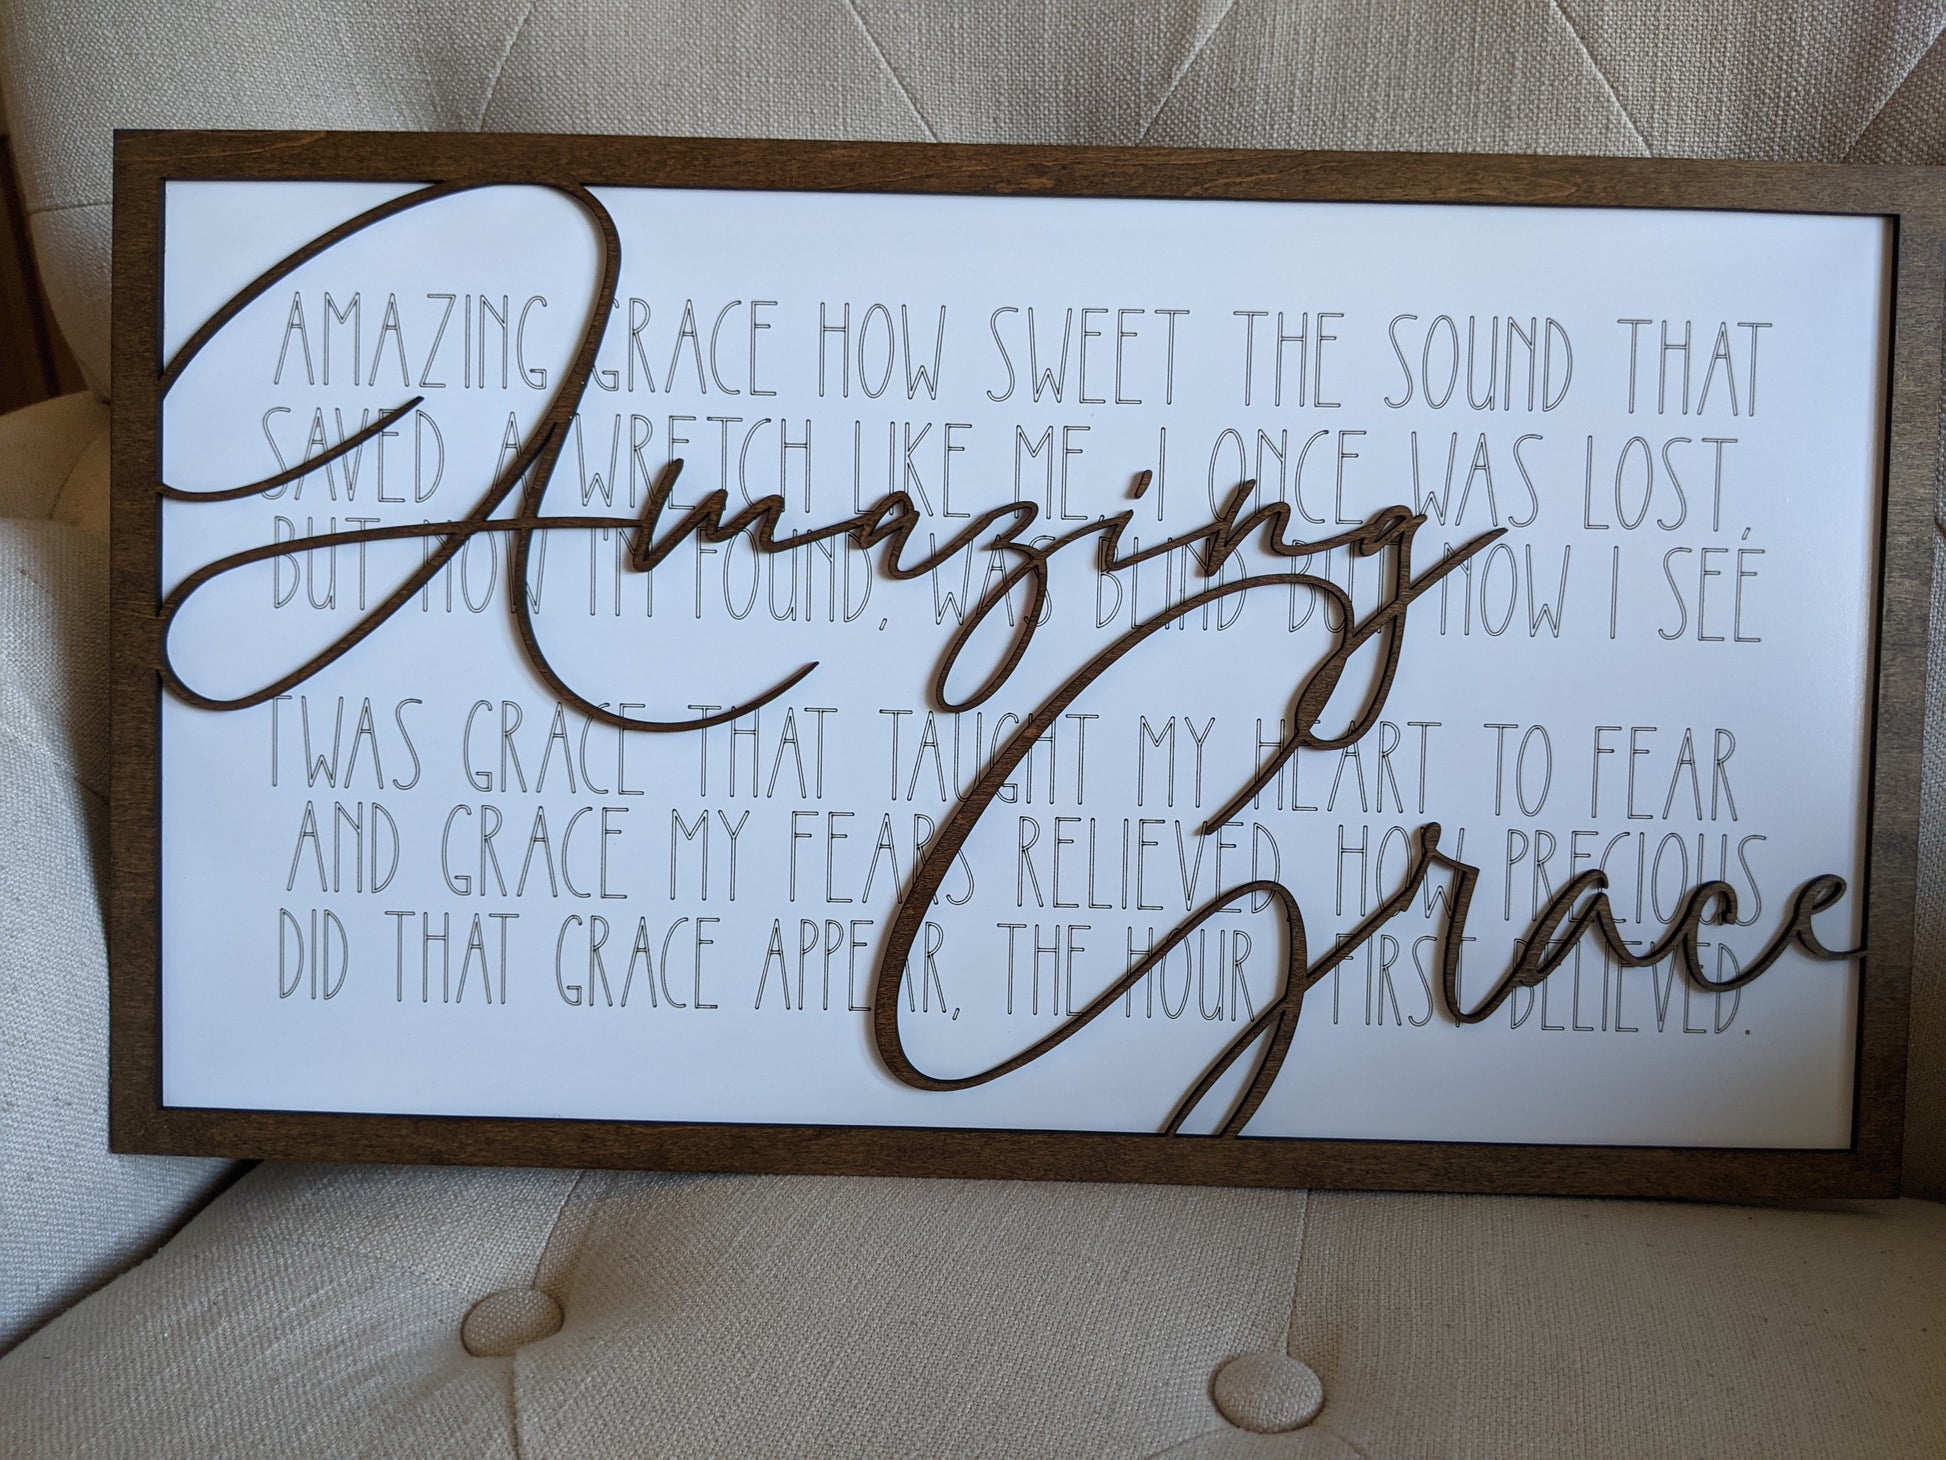 AMAZING GRACE HOW SWEET THE SOUND THAT
SAVED A WRETCH LIKE ME, I ONCE WAS LOST,
BUT NOW I'M FOUND, WAS BLIND BUT NOW I SEE
Amazing
TWAS GRACE THAT TAUGHT MY HEART TO FEAR
AND GRACE MY FEARS RELIEVED, HOW PRECIOUS
DID THAT GRACE APPEAR, THE HOUR I FIRST BELIEVED.
Grace